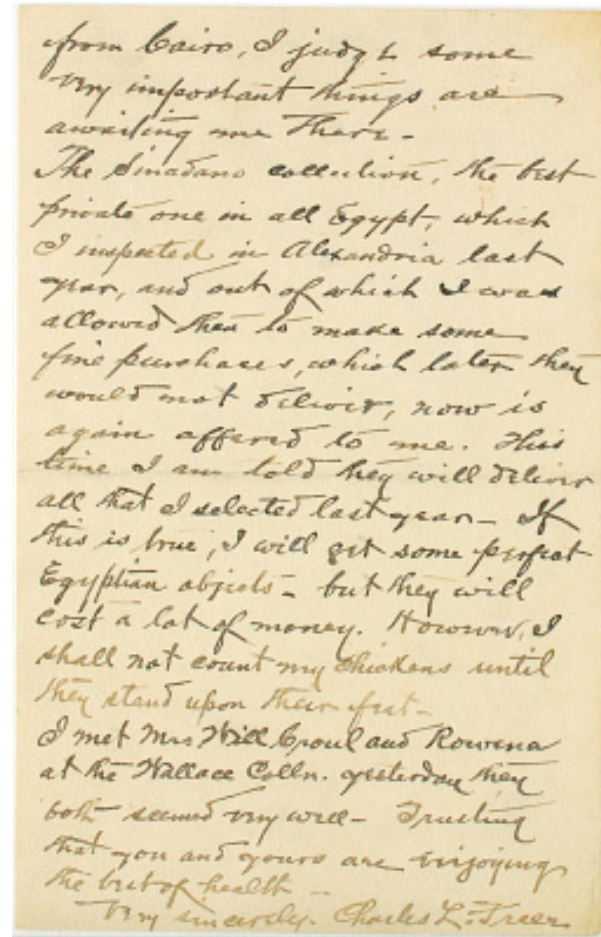 from Cairo, I judge some
very important things are
awaiting me there -
The Sinadano collection, the best
private one in all Egypt, which
I inspected in Alexandria last
year, and out of which I was
allowed then to make some
fine purchases, which later they
would not deliver, now is
again offered to me. This
time I am told they will deliver
all that I selected last year - If
this is true, I will get some perfect
Egyptian objects - but they will
cost a lot of money. However, I
shall not count my chickens until
they stand upon their feet -
I met Mrs Will Croul and Rowena
at the Wallace Colln. yesterday they
both seemed very well - Trusting
that you and yours are enjoying
the best of health -
Very sincerely. Charles L. Freer